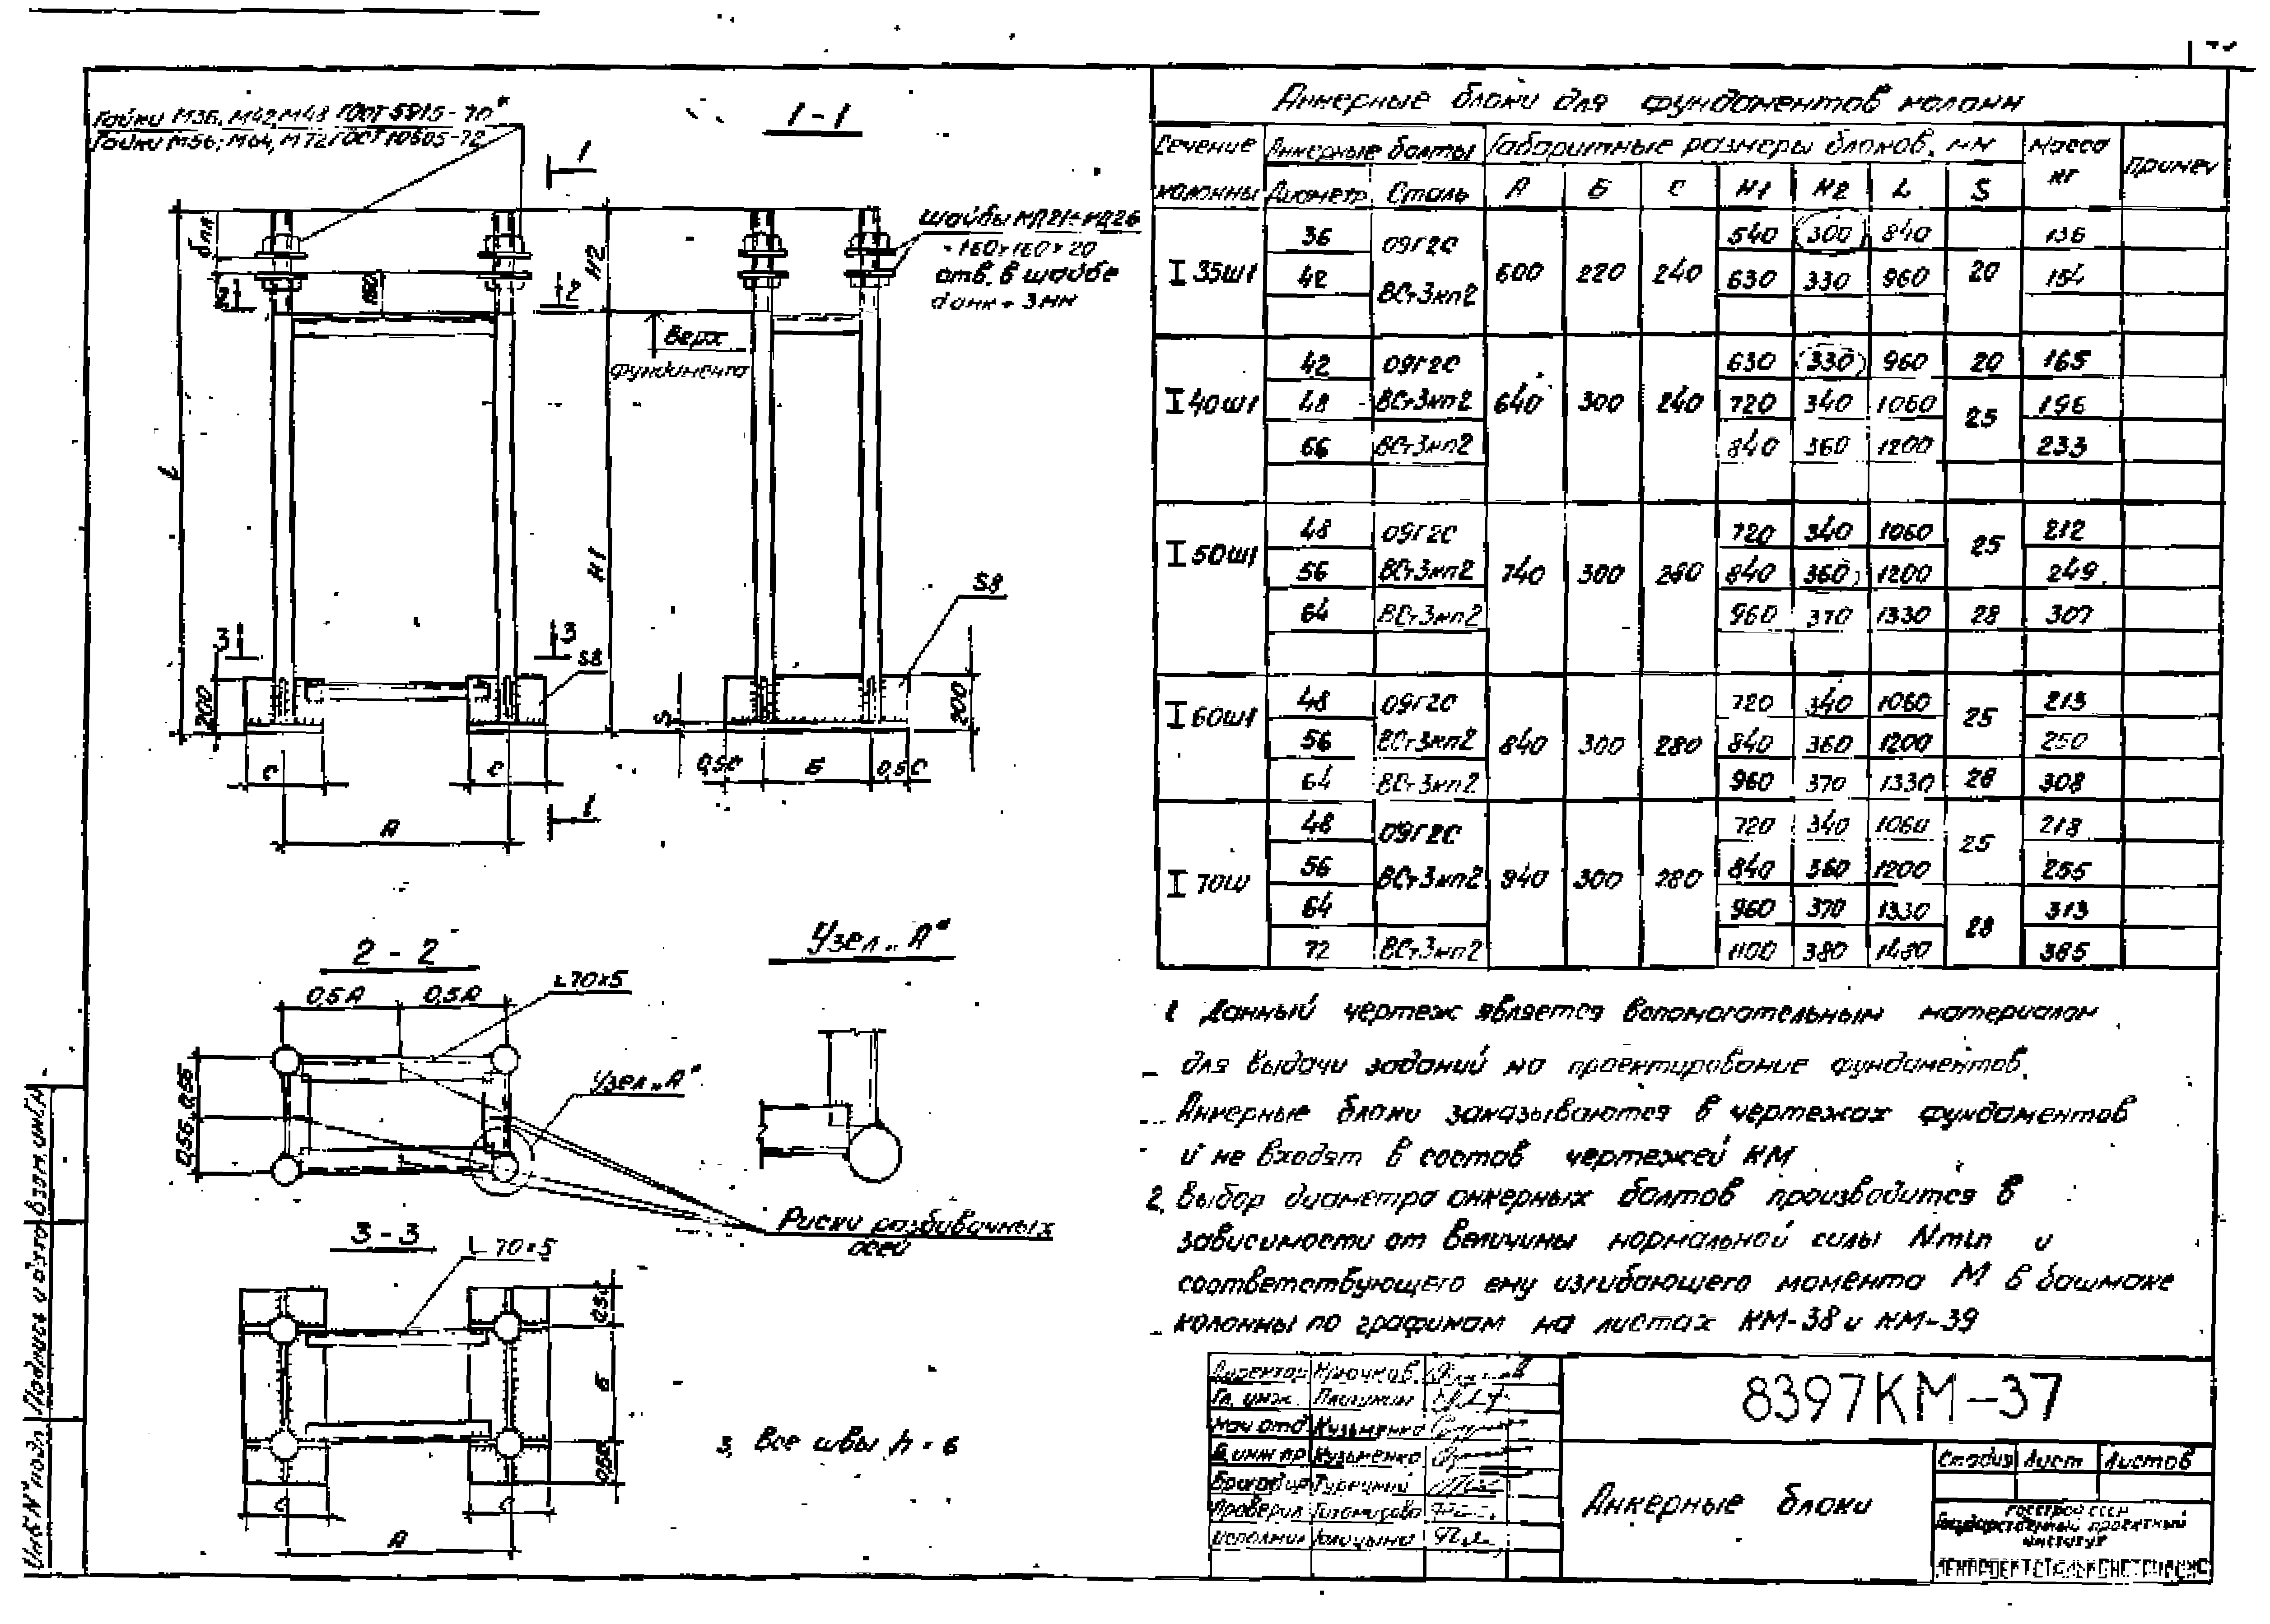 Гайки М36, М42, М48 ГОСТ 5915-70*
Гайки М56; М64, М72 ГОСТ 10605-72
1-1
1
шайбы МД21÷МД26
-160×160×20
отв. в шайбе
dанк + 3мм
2
2
160
Н2
Верх
фундамента
L
Н1
S8
3
3
S8
200
S
200
С
С
0,5С
Б
0,5С
1
А
2-2
Узел „А"
0,5А
0,5А
∟70×5
0,5Б
0,5Б
Узел „А"
Риски разбивочных
осей
3-3
∟70×5
0,5С
Б
0,5С
С
С
А
3. Все швы h = 6
Анкерные блоки для фундаментов колонн
Сечение колонны Анкерные болты Габаритные размеры блоков, мм Масса кг Примеч
Диаметр Сталь А Б С Н1 Н2 L S
I 35ш1 600 220 240 20
36 09Г2С 540 300 840 136
42 ВСт3кп2 630 330 960 154
I 40ш1 640 300 240
42 09Г2С 630 330 960 20 165
48 ВСт3кп2 720 340 1060 25 196
66 ВСт3кп2 840 360 1200 233
I 50ш1 740 300 280
48 09Г2С 720 340 1060 25 212
56 ВСт3кп2 840 360 1200 249
64 ВСт3кп2 960 370 1330 28 307
I 60ш1 840 300 280
48 09Г2С 720 340 1060 25 213
56 ВСт3кп2 840 360 1200 250
64 ВСт3кп2 960 370 1330 28 308
I 70ш 940 300 280
48 09Г2С 720 340 1060 25 218
56 ВСт3кп2 840 360 1200 255
64 960 370 1330 28 313
72 ВСт3кп2 1100 380 1480 365
1 Данный чертеж является вспомогательным материалом
для выдачи заданий на проектирование фундаментов.
Анкерные блоки заказываются в чертежах фундаментов
и не входят в состав чертежей КМ
2. Выбор диаметра анкерных болтов производится в
зависимости от величины нормальной силы Nmin и
соответствующего ему изгибающего момента М в башмаке
колонны по графикам на листах КМ-38 и КМ-39
Директор Крючков
Гл. инж.
Нач отд Кузьменко
Гл инж пр Кузьменко
Бригадир Турецкий
Проверил
Исполнил
8397КМ-37
Анкерные блоки
Стадия Лист Листов
Госстрой СССР
Государственный проектный
институт
ЛЕНПРОЕКТСТАЛЬКОНСТРУКЦИЯ
Инв.N°подл. Подпись и дата Взам.инв.N